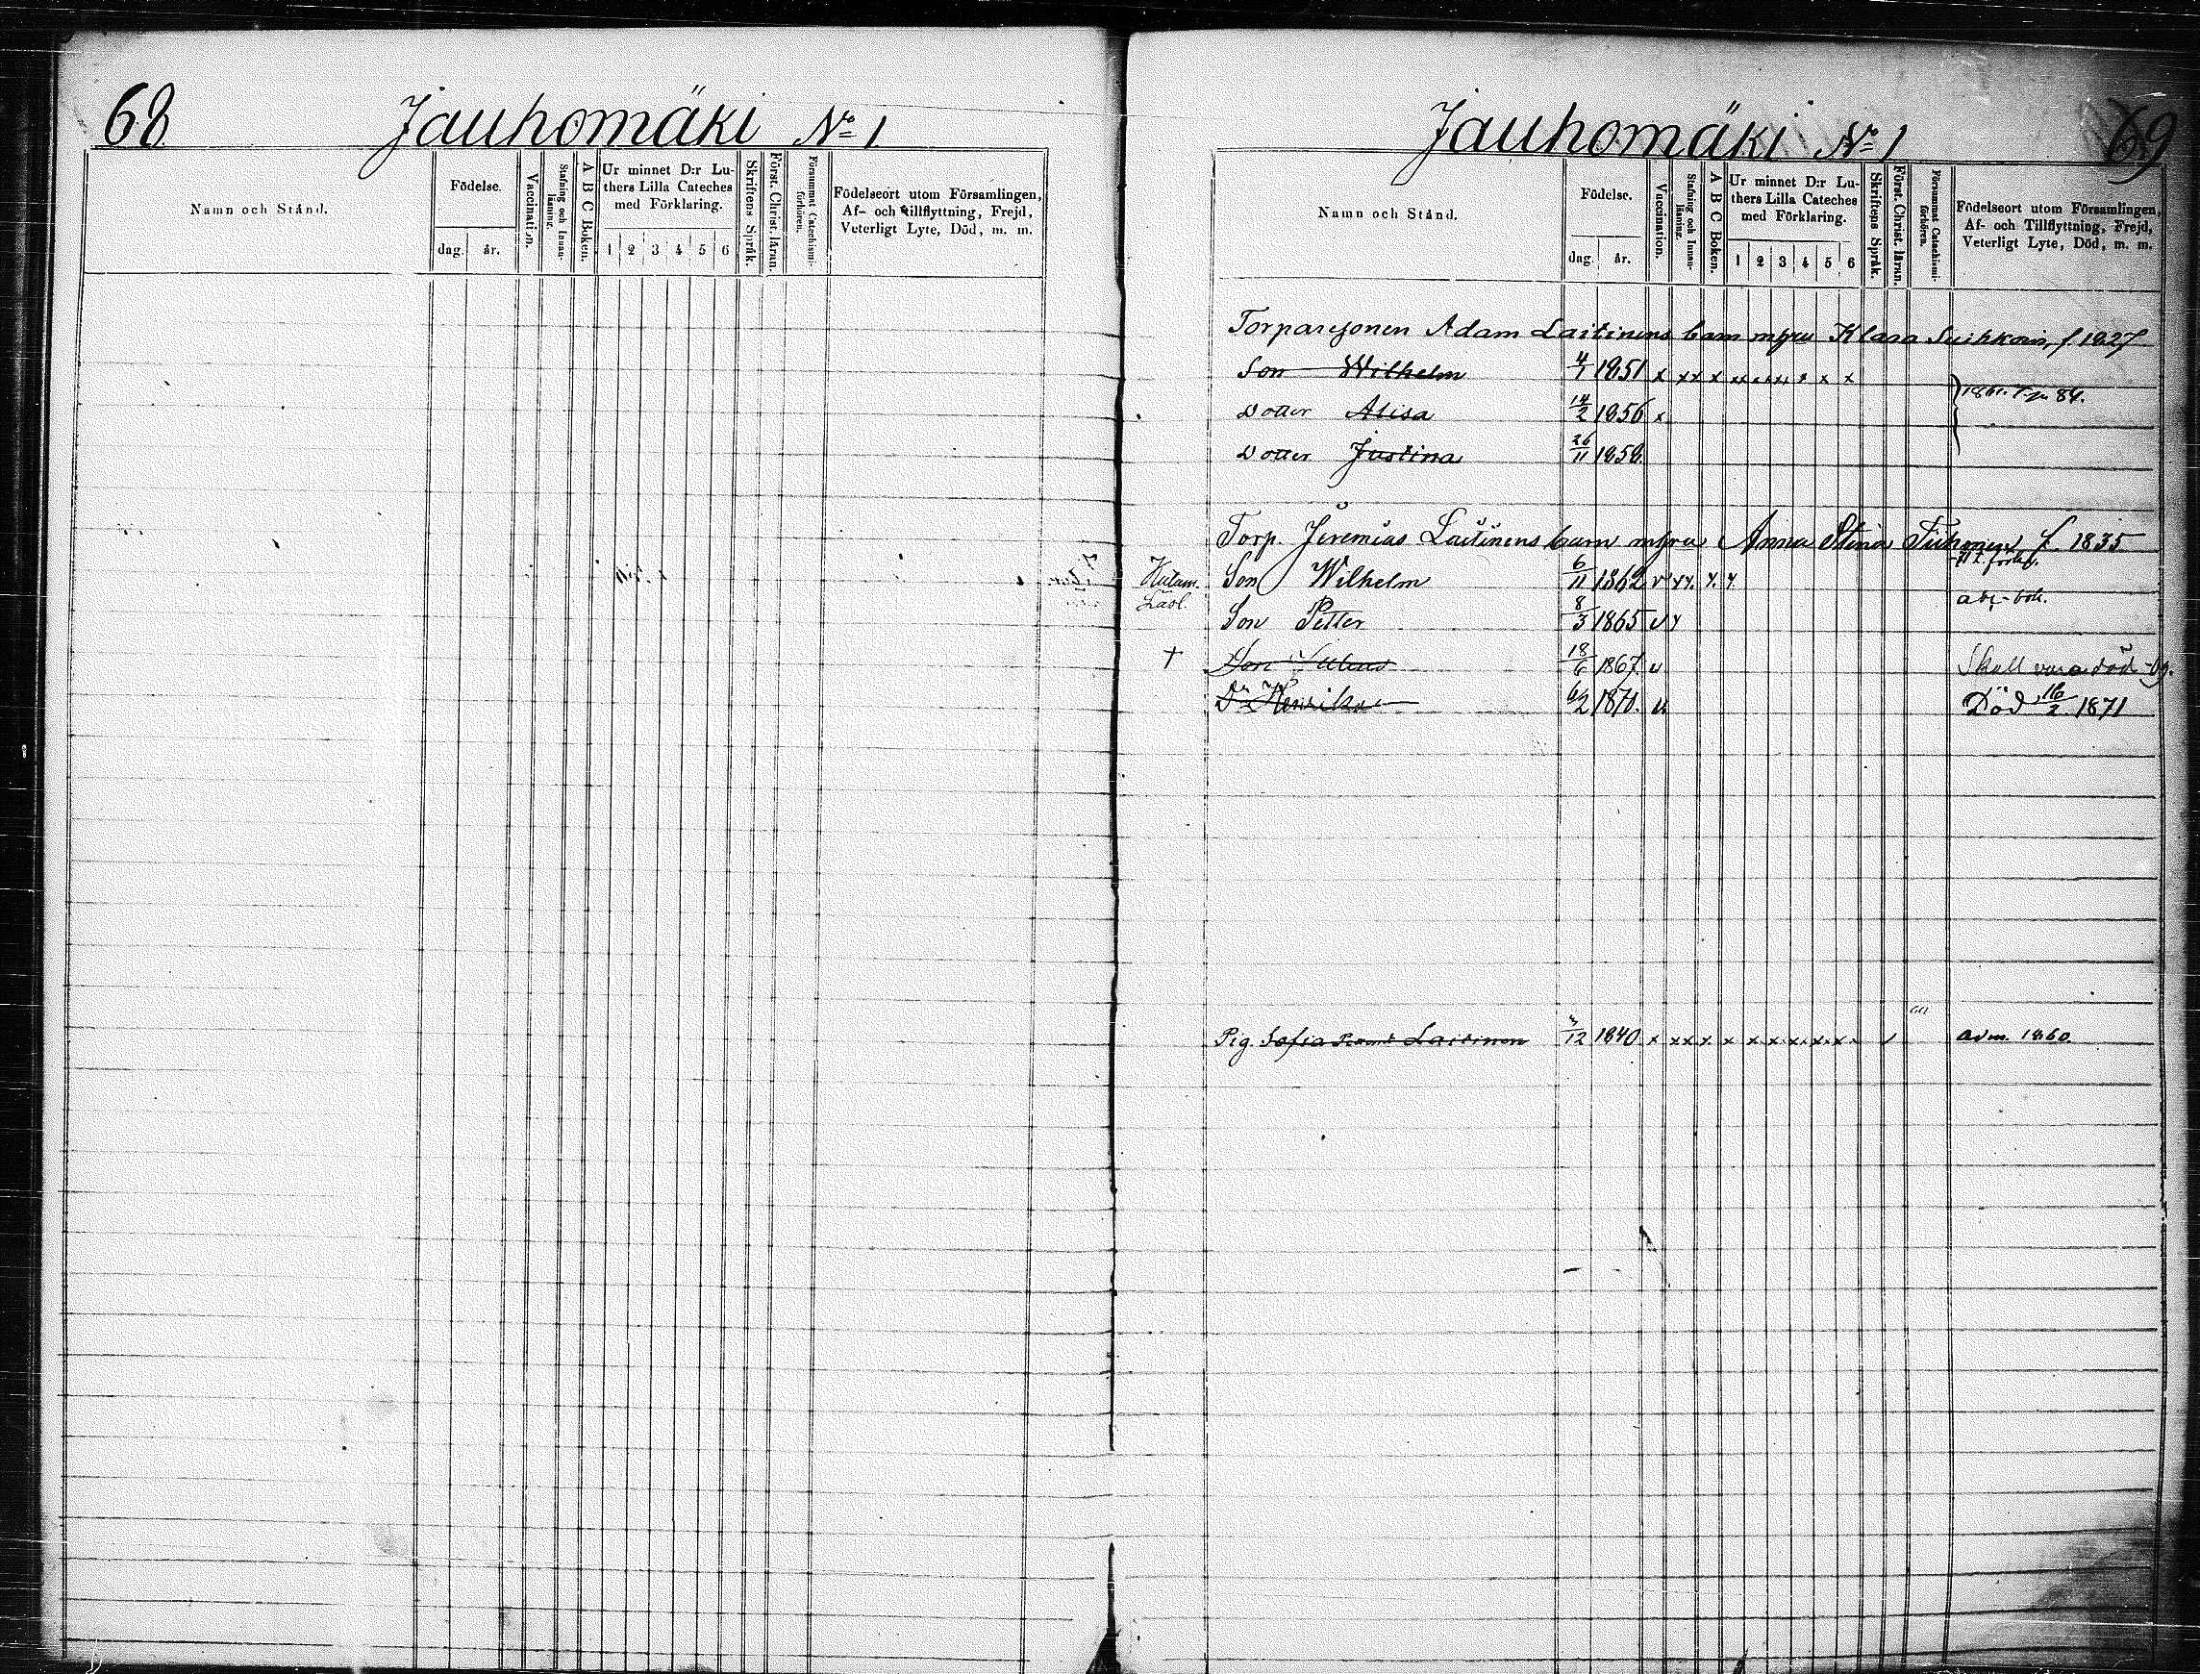 68 Jauhomäki No 1
Namn och Stånd.
Födelse.
dag. år.
Vaccination.
Stafning och Innan-läsning.
A B C Boken.
Ur minnet D:r Lu-
thers Lilla Cateches
med Förklaring.
1 2 3 4 5 6
Skriftens Språk.
Först. Christ. läran.
Försummat Catechismi-förhören.
Födelseort utom Församlingen,
Af- och tillflyttning, Frejd,
Veterligt Lyte, Död, m. m.
Jauhomäki No 1 69
Namn och Stånd.
Födelse.
dag. år.
Vaccination.
Stafning och Innan-läsning.
A B C Boken.
Ur minnet D:r Lu-
thers Lilla Cateches
med Förklaring.
1 2 3 4 5 6
Skriftens Språk.
Först. Christ. läran.
Försummat Catechismi-förhören.
Födelseort utom Församlingen,
Af- och Tillflyttning, Frejd,
Veterligt Lyte, Död, m. m.
Torparesonen Adam Laitinens barn Klara f. 1827
Son Wilhelm 4/1 1851 x xx x
Dotter Alisa 14/2 1856 x 84.
Dotter Justina 26/11 1858
Torp. Jeremias Laitinens barn Anna Stina f. 1835
Son Wilhelm 6/11 1862
Son Petter 8/3 1865
† Son 18/6 1867 Skall vara död
Dr 6/2 1870. Död 16/2 1871
Pig. Sofia Laitinen 3/12 1840 x xx x x x x adm. 1860.